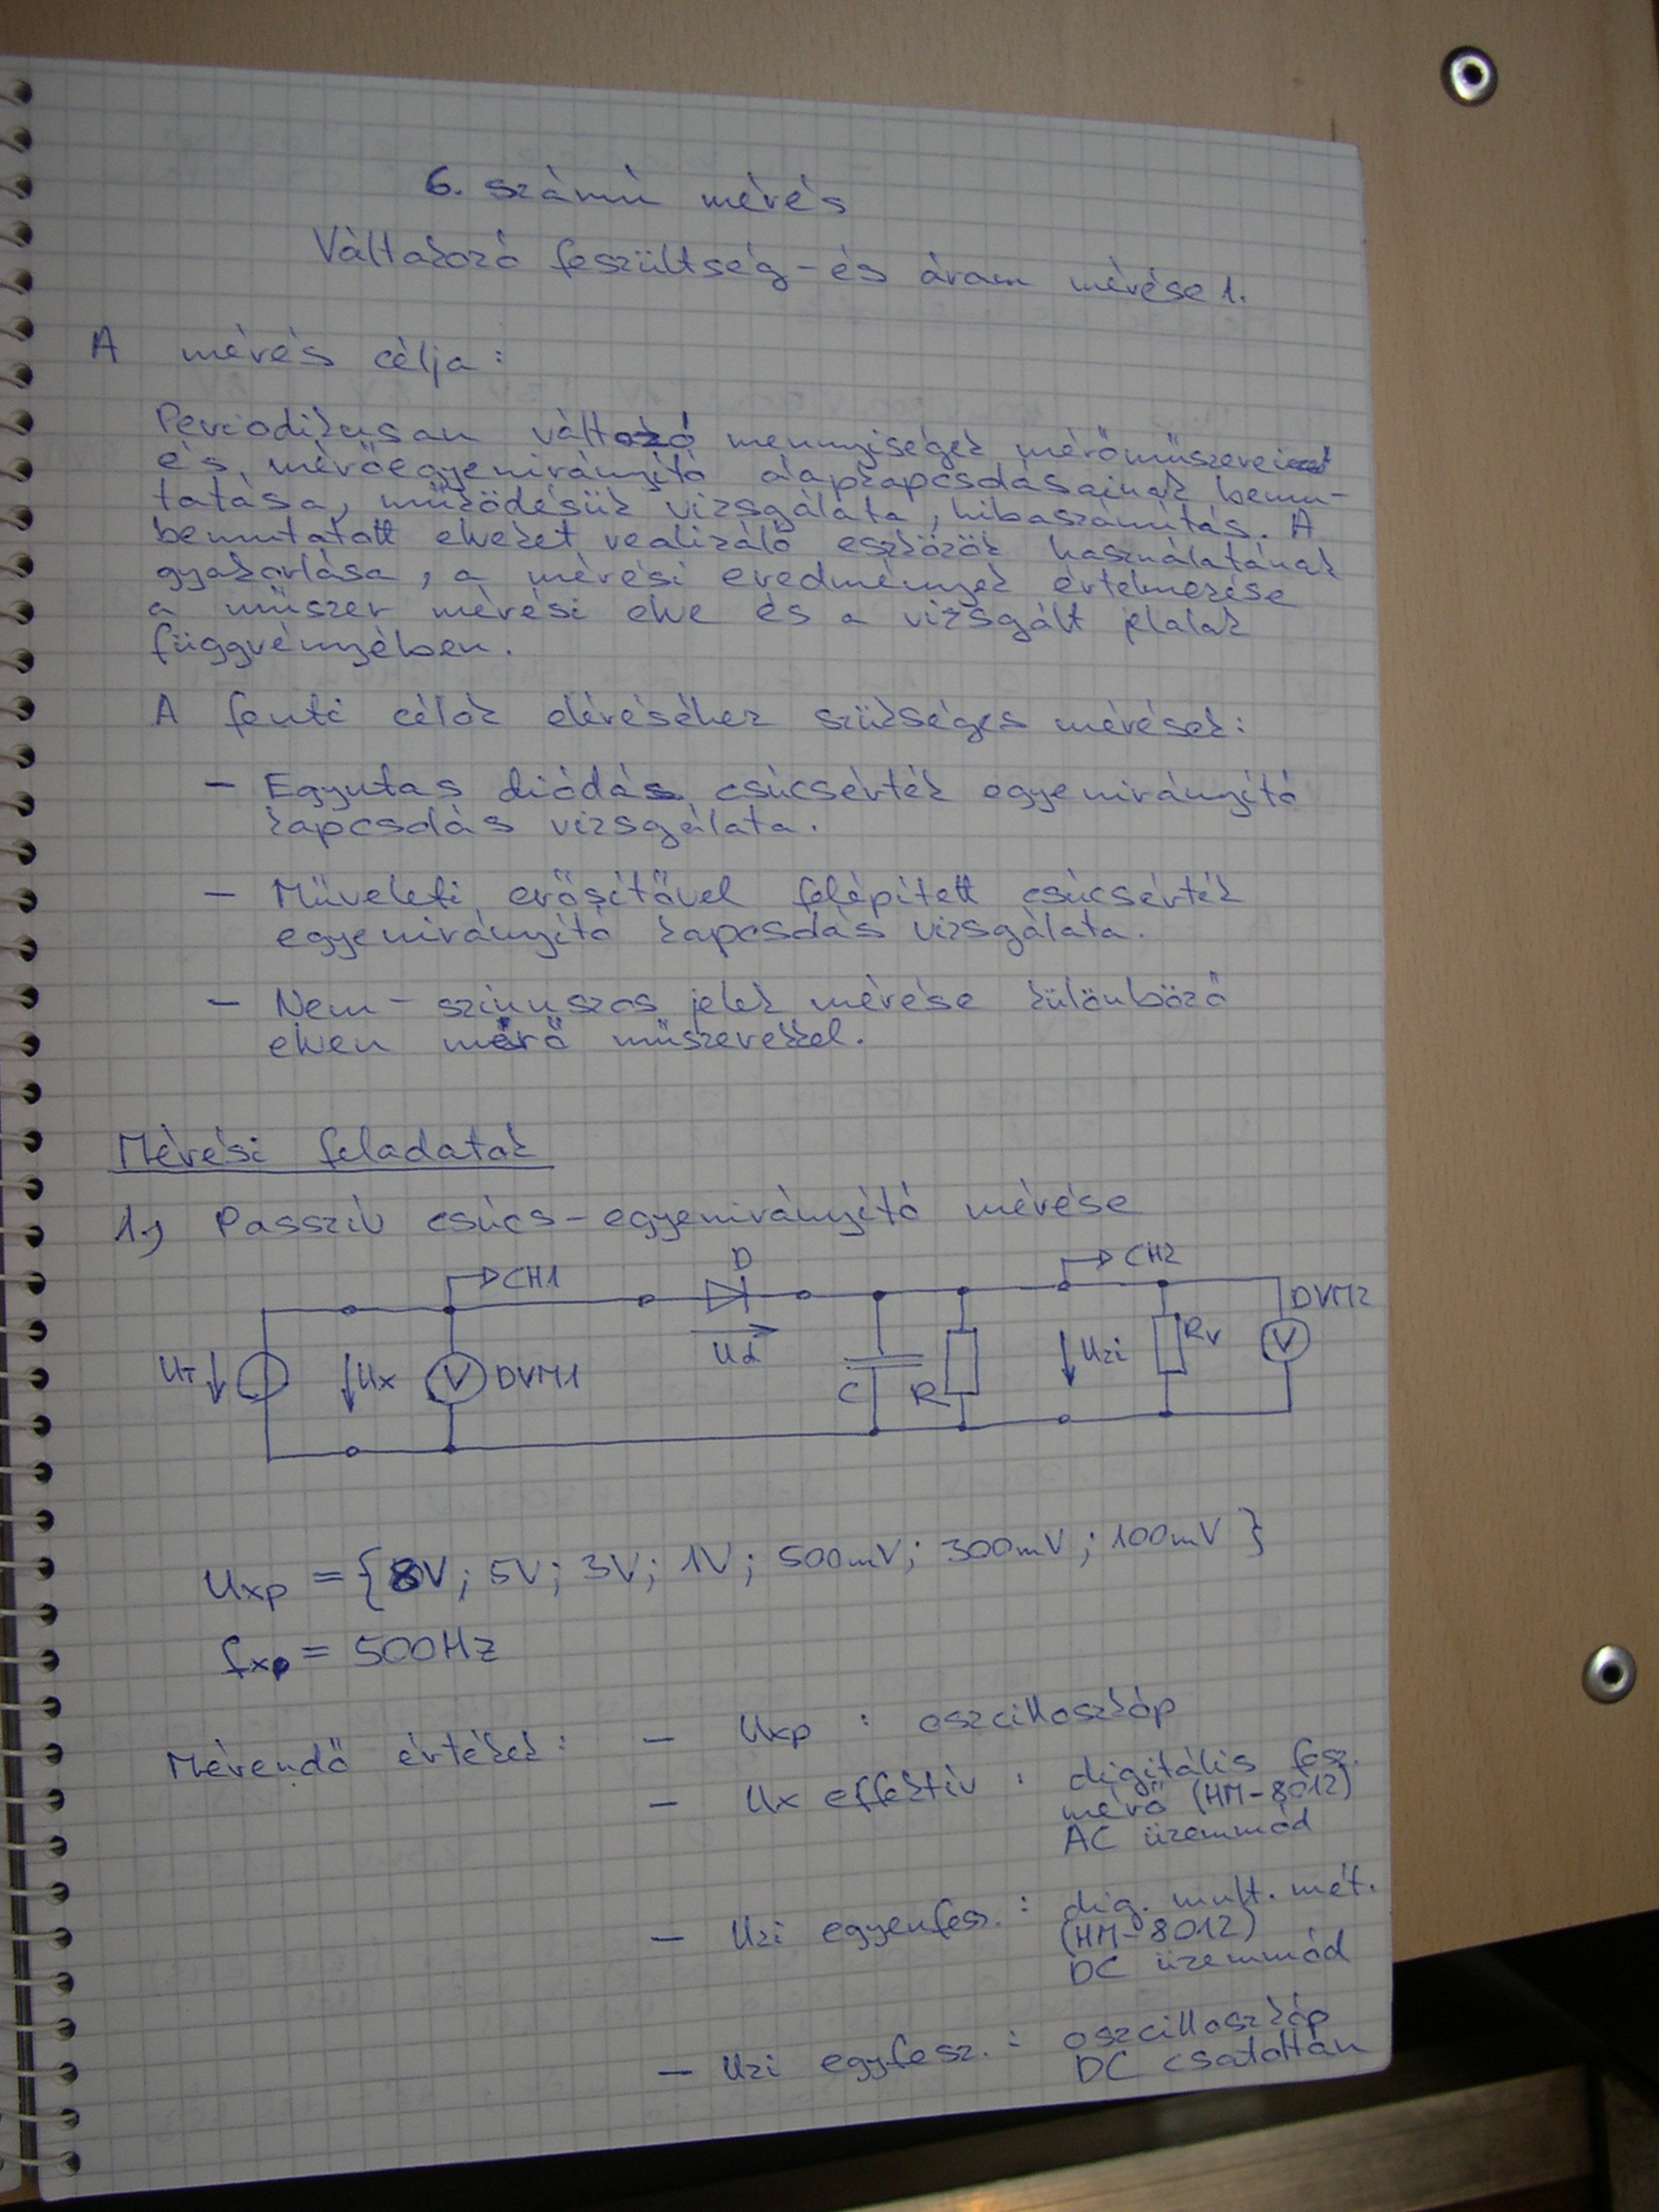 6. számú mérés
Váltakozó feszültség - és áram mérése 1.
A mérés célja:
Periodikusan változó mennyiségek mérőműszerei
és mérőegyenirányító alapkapcsolásainak bemu-
tatása, működésük vizsgálata, hibaszámítás. A
bemutatott elveket realizáló eszközök használatának
gyakorlása, a mérési eredmények értelmezése
a műszer mérési elve és a vizsgált jelalak
függvényében.
A fenti célok eléréséhez szükséges mérések:
- Egyutas diódás csúcsérték egyenirányító
kapcsolás vizsgálata.
- Műveleti erősítővel felépített csúcsérték
egyenirányító kapcsolás vizsgálata.
- Nem - szinuszos jelek mérése különböző
elven mérő műszerekkel.
Mérési feladatok
1.) Passzív csúcs - egyenirányító mérése
CH1 D CH2
UT Ux V DVM1 Ud C R Uki Rv V DVM2
Uxp = {8V; 5V; 3V; 1V; 500mV; 300mV; 100mV}
fxp = 500Hz
Mérendő értékek: - Uxp : oszcilloszkóp
- Ux effektív : digitális fesz.
mérő (HM-8012)
AC üzemmód
- Uki egyenfesz. : dig. mult. mét.
(HM-8012)
DC üzemmód
- Uki egyfesz. : oszcilloszkóp
DC csatoltan